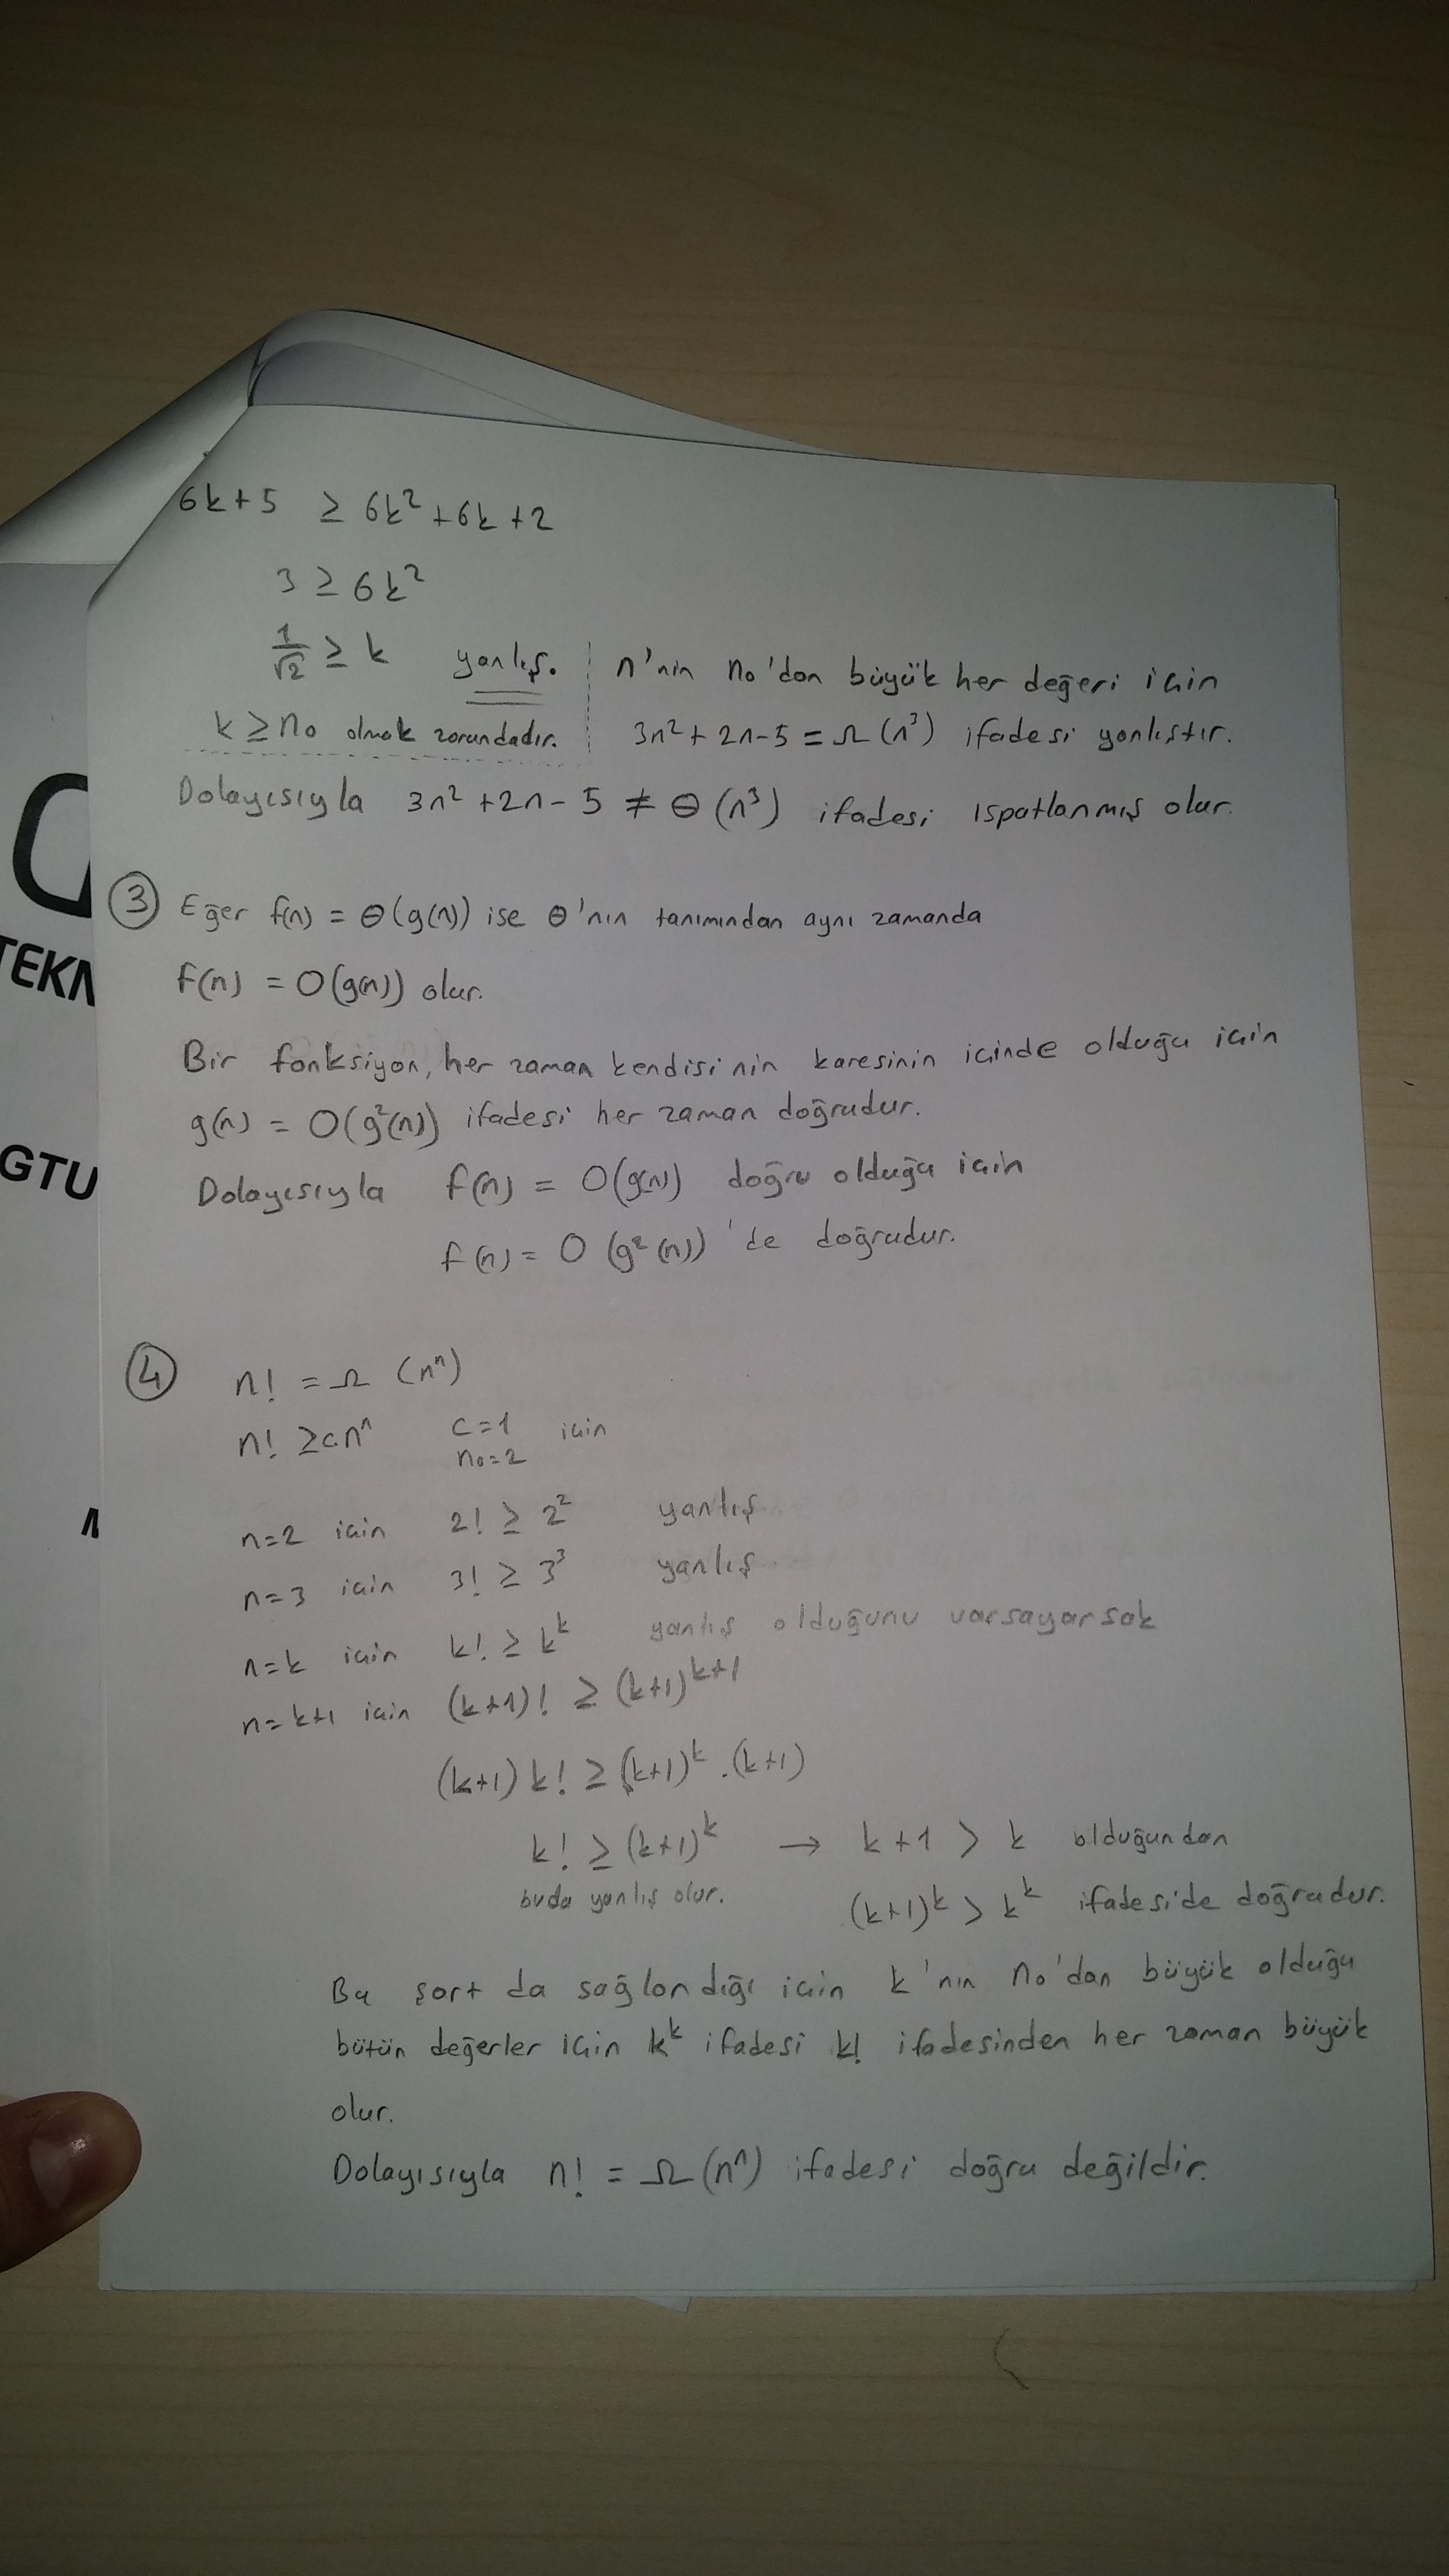 6k+5 ≥ 6k²+6k+2
3 ≥ 6k²
1/√2 ≥ k yanlış.
k ≥ n₀ olmak zorundadır.
n'nin n₀'dan büyük her değeri için
3n²+2n-5 = Ω(n³) ifadesi yanlıştır.
Dolayısıyla 3n²+2n-5 ≠ Θ(n³) ifadesi ispatlanmış olur.
③ Eğer f(n) = Θ(g(n)) ise Θ'nın tanımından aynı zamanda
f(n) = O(g(n)) olur.
Bir fonksiyon, her zaman kendisi'nin karesinin içinde olduğu için
g(n) = O(g²(n)) ifadesi her zaman doğrudur.
Dolayısıyla f(n) = O(g(n)) doğru olduğu için
f(n) = O(g²(n))'de doğrudur.
④ n! = Ω(nⁿ)
n! ≥ cnⁿ c=1 için
n₀=2
n=2 için 2! ≥ 2² yanlış
n=3 için 3! ≥ 3³ yanlış
n=k için k! ≥ k^k yanlış olduğunu varsayarsak
n=k+1 için (k+1)! ≥ (k+1)^(k+1)
(k+1) k! ≥ (k+1)^k . (k+1)
k! ≥ (k+1)^k → k+1 > k olduğundan
buda yanlış olur. (k+1)^k > k^k ifadeside doğrudur.
Bu şart da sağlandığı için k'nın n₀'dan büyük olduğu
bütün değerler için k^k ifadesi k! ifadesinden her zaman büyük
olur.
Dolayısıyla n! = Ω(nⁿ) ifadesi doğru değildir.
TEKN
GTU